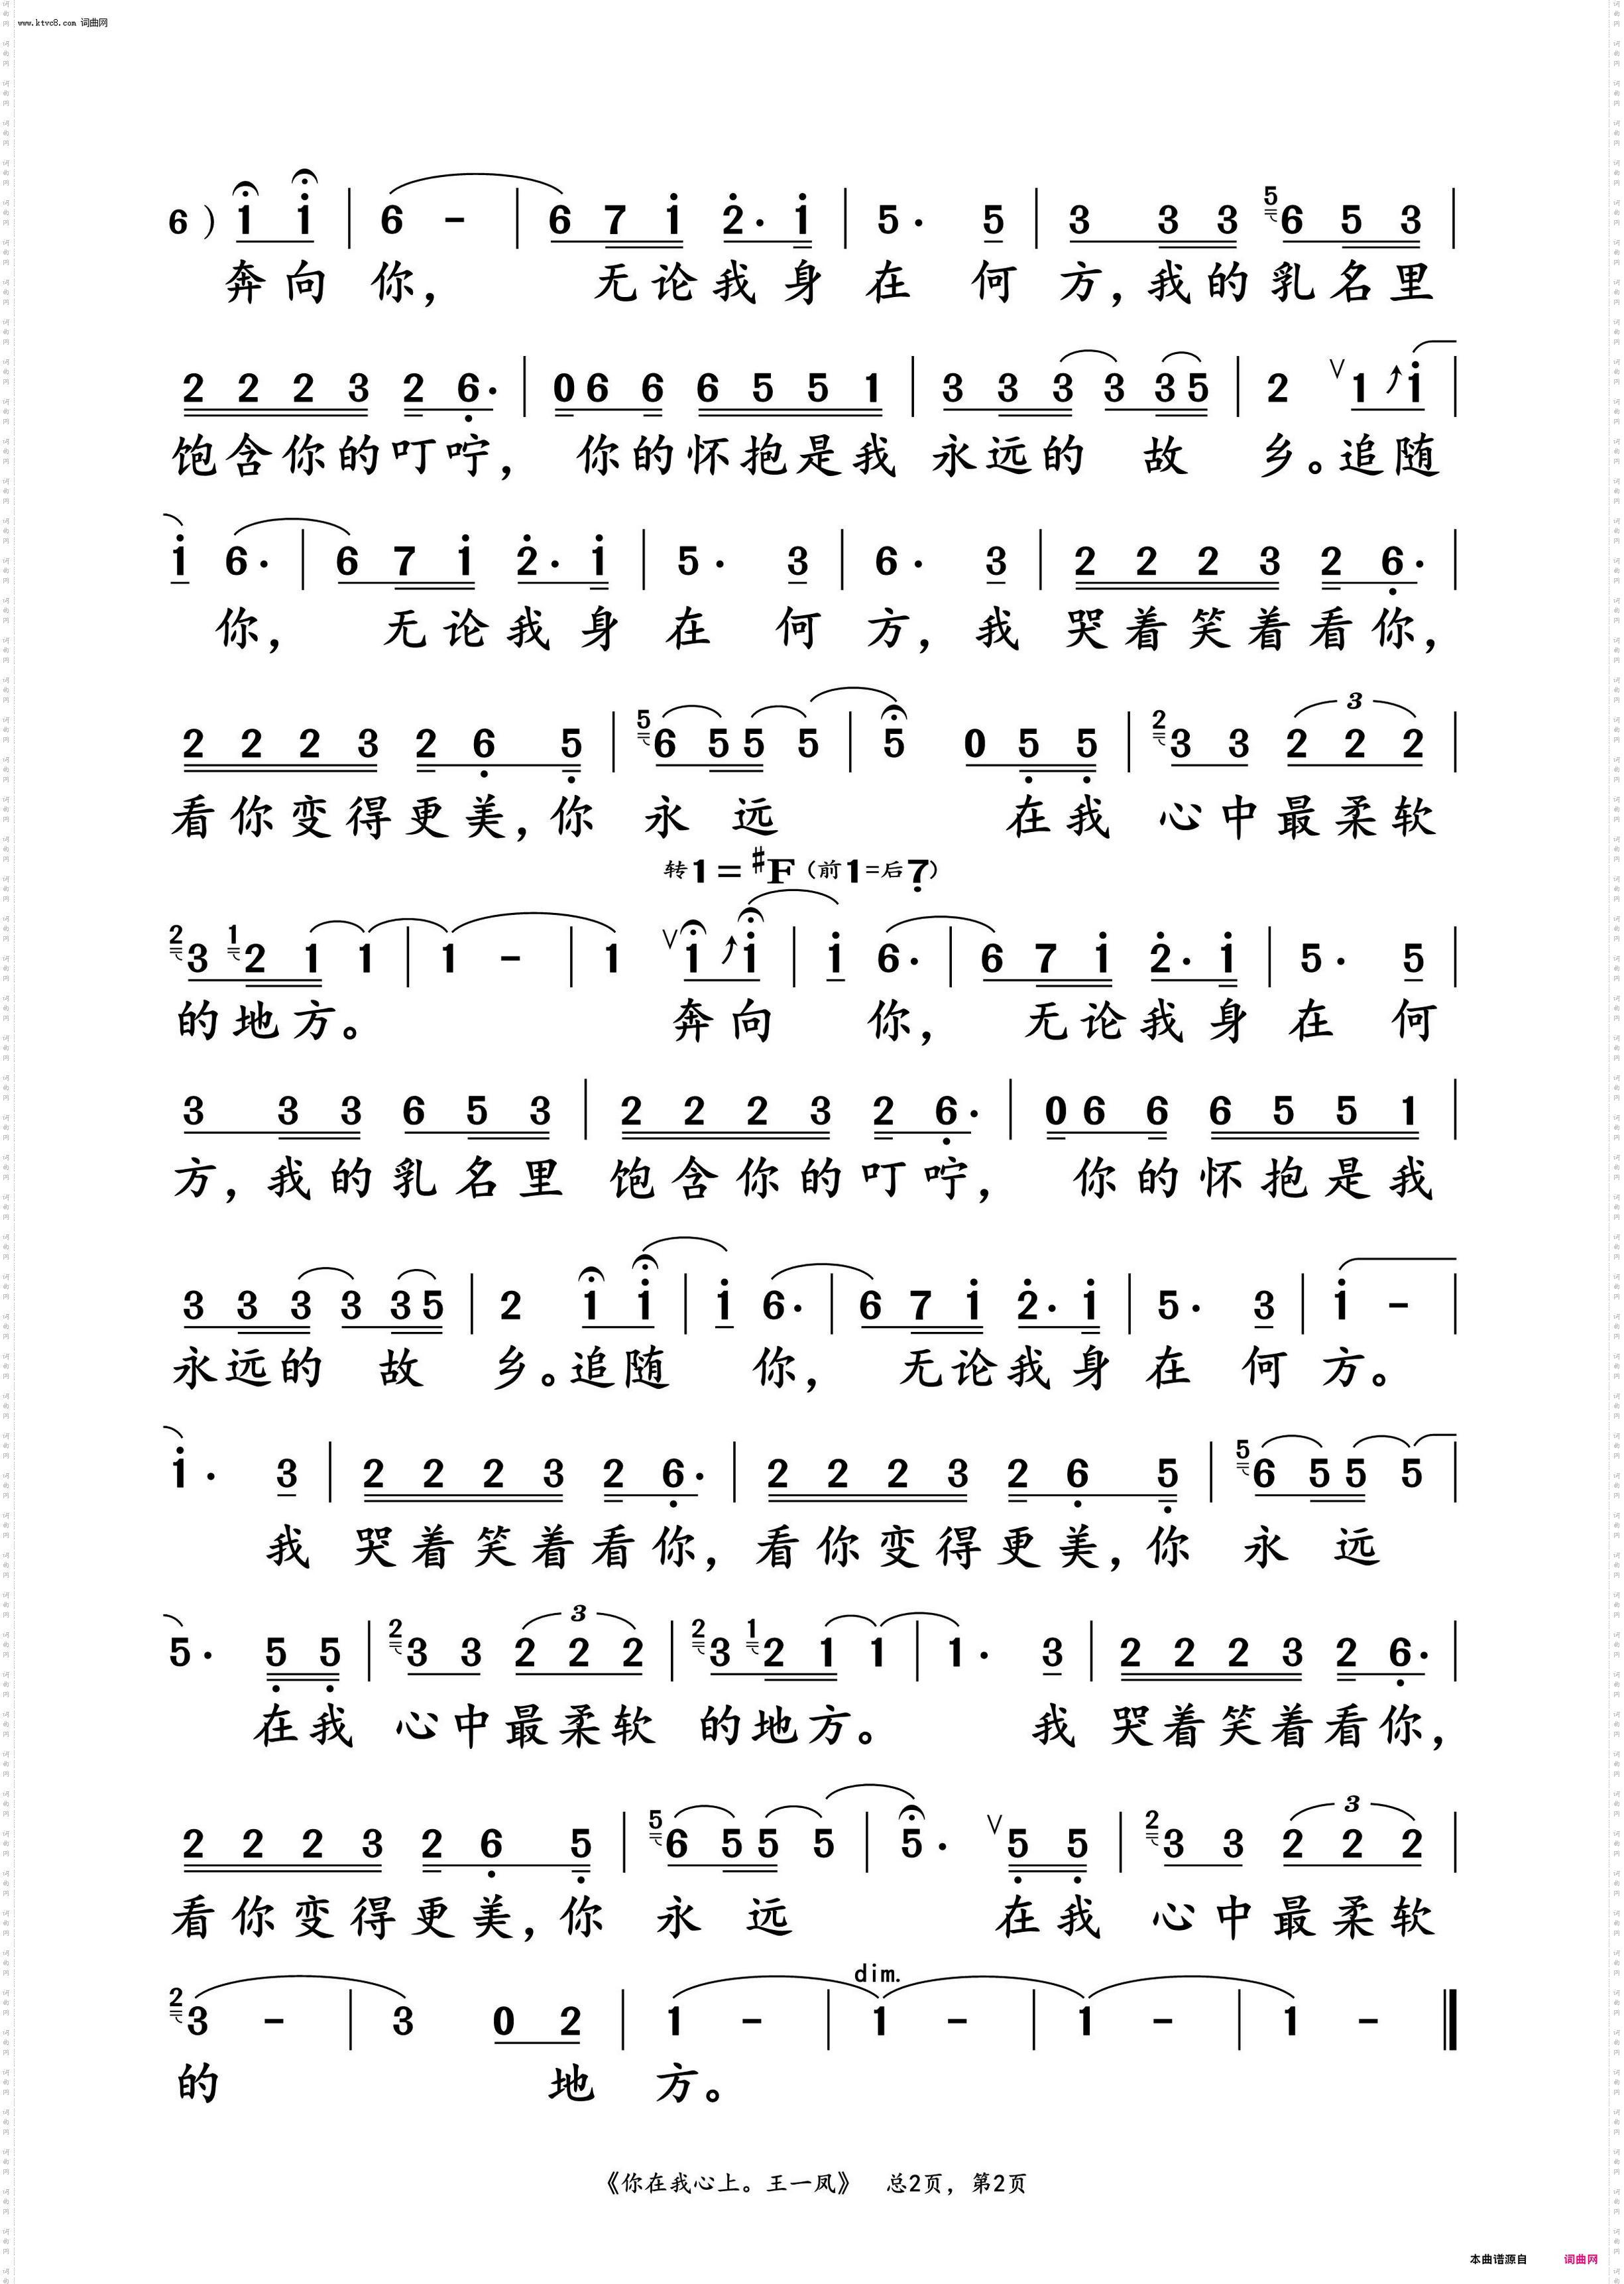 www.ktvc8.com 词曲网
6 ) 1 i | 6 - | 6 7 i 2· i | 5· 5 | 3 3 3 5 6 5 3 |
奔向 你， 无论我身 在 何 方，我的乳名里
2 2 2 3 2 6· | 0 6 6 6 5 5 1 | 3 3 3 3 3 5 | 2 ∨ 1 i |
饱含你的叮咛， 你的怀抱是我 永远的 故 乡。追随
i 6· | 6 7 i 2· i | 5· 3 | 6· 3 | 2 2 2 3 2 6· |
你， 无论我身 在 何 方，我 哭着笑着看你，
2 2 2 3 2 6 5 | 5 6 5 5 5 | 5 0 5 5 | 2 3 3 3 2 2 2 |
看你变得更美，你 永 远 在我 心中最柔软
转1=♯F（前1=后7）
2 3 1 2 1 1 | 1 - | 1 ∨ 1 i | i 6· | 6 7 i 2· i | 5· 5 |
的地方。 奔向 你， 无论我身 在 何
3 3 3 6 5 3 | 2 2 2 3 2 6· | 0 6 6 6 5 5 1 |
方，我的乳名里 饱含你的叮咛， 你的怀抱是我
3 3 3 3 3 5 | 2 1 i | i 6· | 6 7 i 2· i | 5· 3 | i - |
永远的 故 乡。追随 你， 无论我身 在 何 方。
i· 3 | 2 2 2 3 2 6· | 2 2 2 3 2 6 5 | 5 6 5 5 5 |
我 哭着笑着看你，看你变得更美，你 永 远
5· 5 5 | 2 3 3 3 2 2 2 | 2 3 1 2 1 1 | 1· 3 | 2 2 2 3 2 6· |
在我 心中最柔软 的地方。 我 哭着笑着看你，
2 2 2 3 2 6 5 | 5 6 5 5 5 | 5· ∨ 5 5 | 2 3 3 3 2 2 2 |
看你变得更美，你 永 远 在我 心中最柔软
dim.
2 3 - | 3 0 2 | 1 - | 1 - | 1 - | 1 - ‖
的 地 方。
《你在我心上。王一凤》 总2页，第2页
本曲谱源自 词曲网